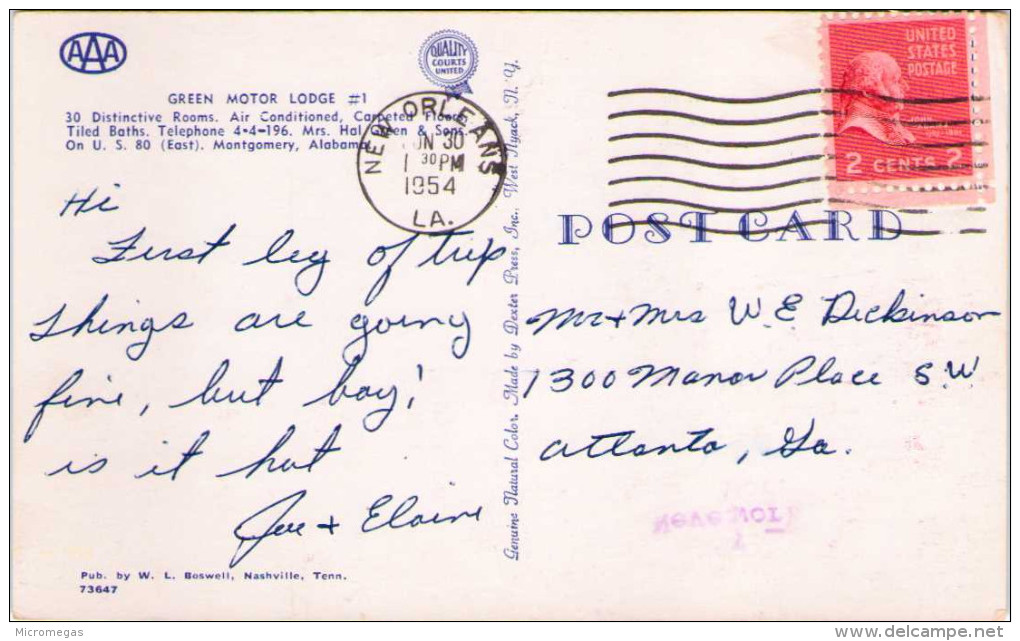 AAA
QUALITY
COURTS
UNITED
GREEN MOTOR LODGE #1
30 Distinctive Rooms. Air Conditioned, Carpeted Floors,
Tiled Baths. Telephone 4-4-196. Mrs. Hal Green & Sons.
On U. S. 80 (East). Montgomery, Alabama
NEW ORLEANS
JUN 30
1 30 PM
1954
LA.
UNITED
STATES
POSTAGE
JOHN
2 CENTS 2
POST CARD
Hi
First leg of trip
things are going
fine, but boy!
is it hot
Joe + Elaine
Genuine Natural Color. Made by Dexter Press, Inc., West Nyack, N. Y.
Mr + Mrs W. E Dickinson
1300 Manor Place S.W
Atlanta, Ga.
Pub. by W. L. Boswell, Nashville, Tenn.
73647
Micromegas
delcampe.net